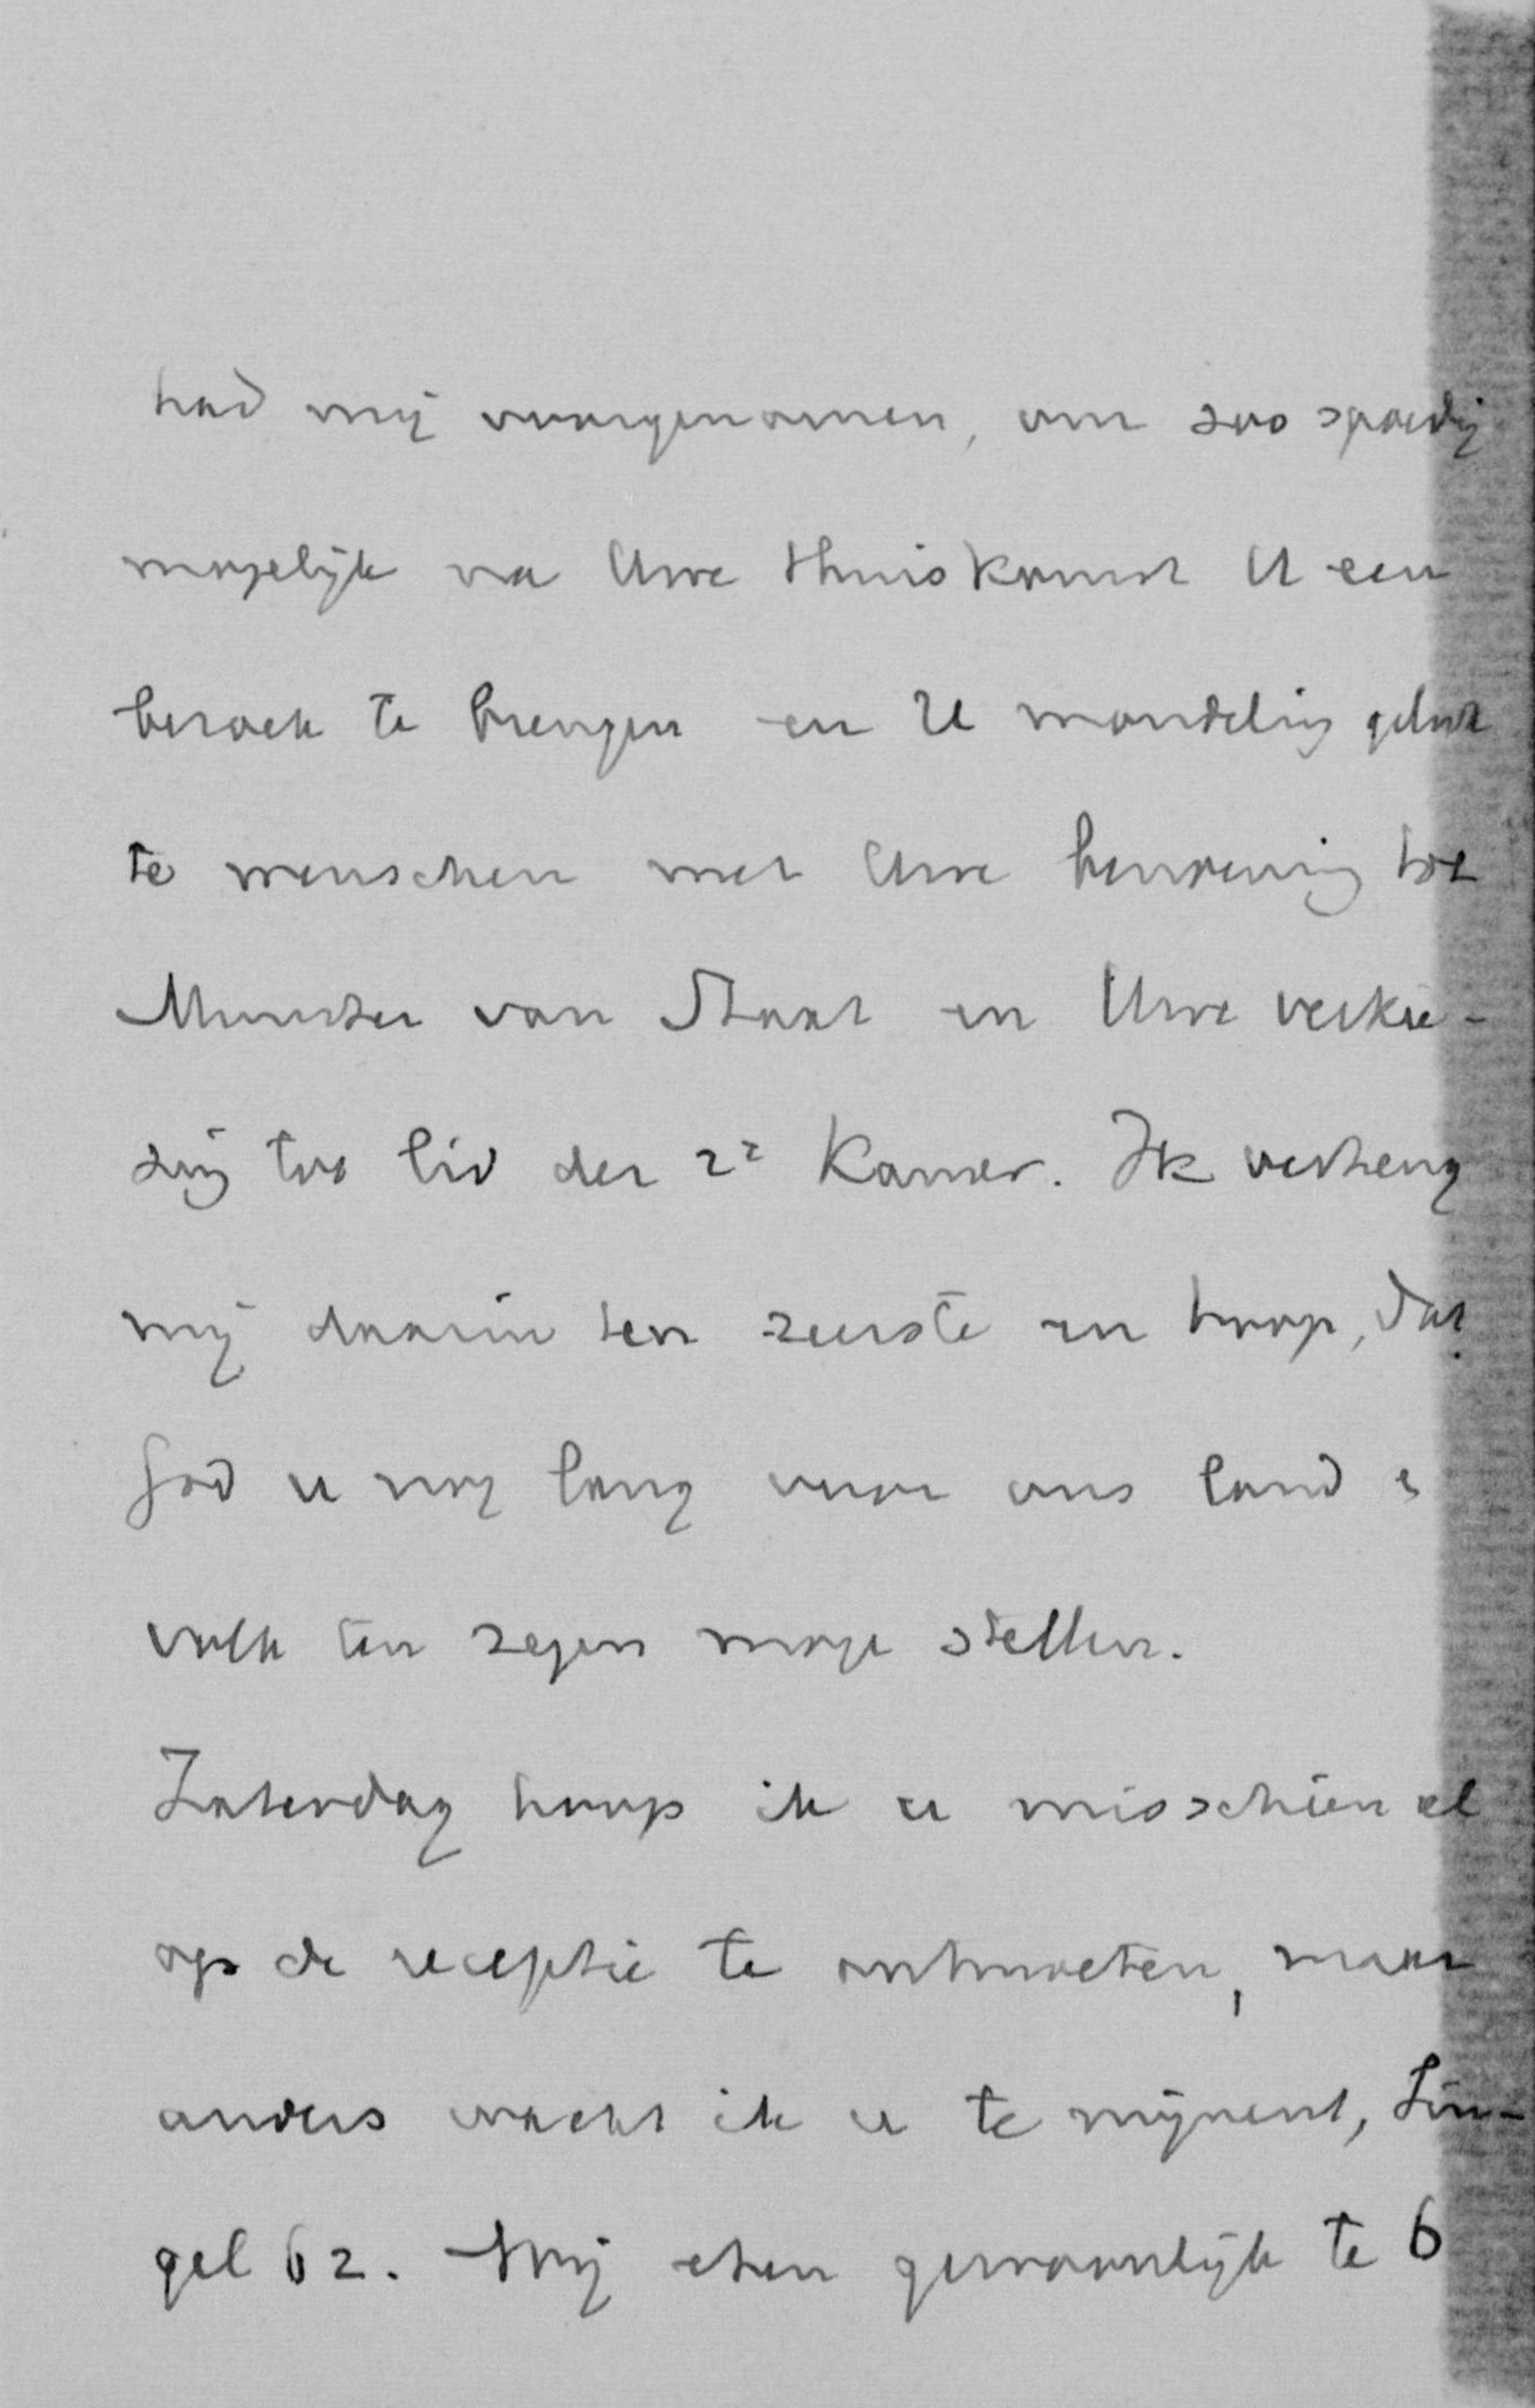 had mij voorgenomen, om zoo spoedig
mogelijk na Uwe thuiskomst U een
bezoek te brengen en U mondeling geluk
te wenschen met Uwe benoeming tot
Minister van Staat en Uwe verkie-
zing tot lid der 2e Kamer. Ik verheug
mij daarin ten zeerste en hoop, dat
God u nog lang voor ons land e
volk ten zegen moge stellen.
Zaterdag hoop ik u misschien al
op de receptie te ontmoeten, maar
anders wacht ik u te mijnent, Sin-
gel 62. Wij eten gewoonlijk te 6